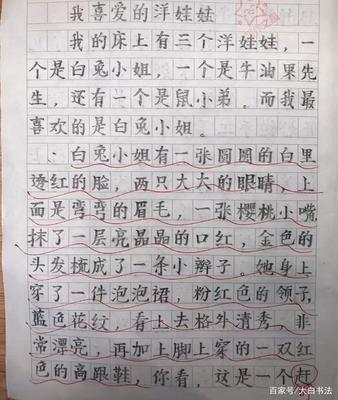 我喜爱的洋娃娃
我的床上有三个洋娃娃，一
个是白兔小姐，一个是牛油果先
生，还有一个是鼠小弟。而我最
喜欢的是白兔小姐。
白兔小姐有一张圆圆的白里
透红的脸，两只大大的眼睛，上
面是弯弯的眉毛，一张樱桃小嘴
抹了一层亮晶晶的口红，金色的
头发梳成了一条小辫子。她身上
穿了一件泡泡裙，粉红色的领子，
蓝色花纹，看上去格外清秀、非
常漂亮，再加上脚上穿的一双红
色的高跟鞋，你看，这是一个赶
百家号/大白书法